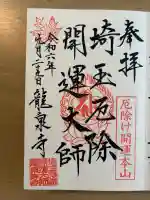 奉拝
厄除け開運大本山
埼玉厄除
開運大師
令和六年
九月二十五日
龍泉寺